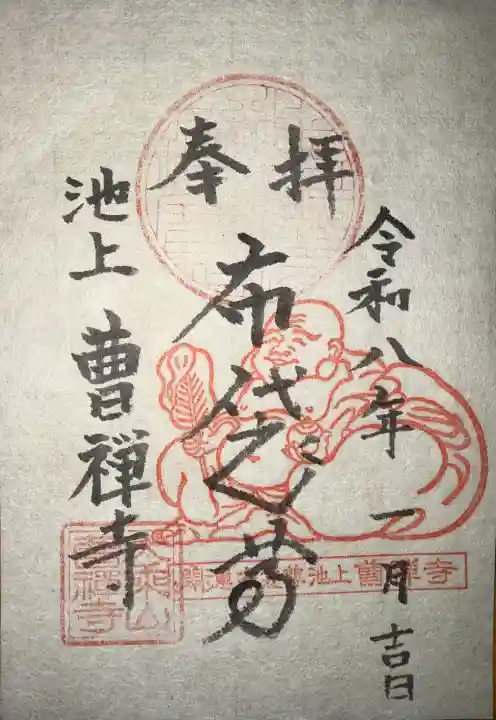 奉拝
令和八年一月吉日
布袋尊
池上 曹禅寺
池上曹禅寺